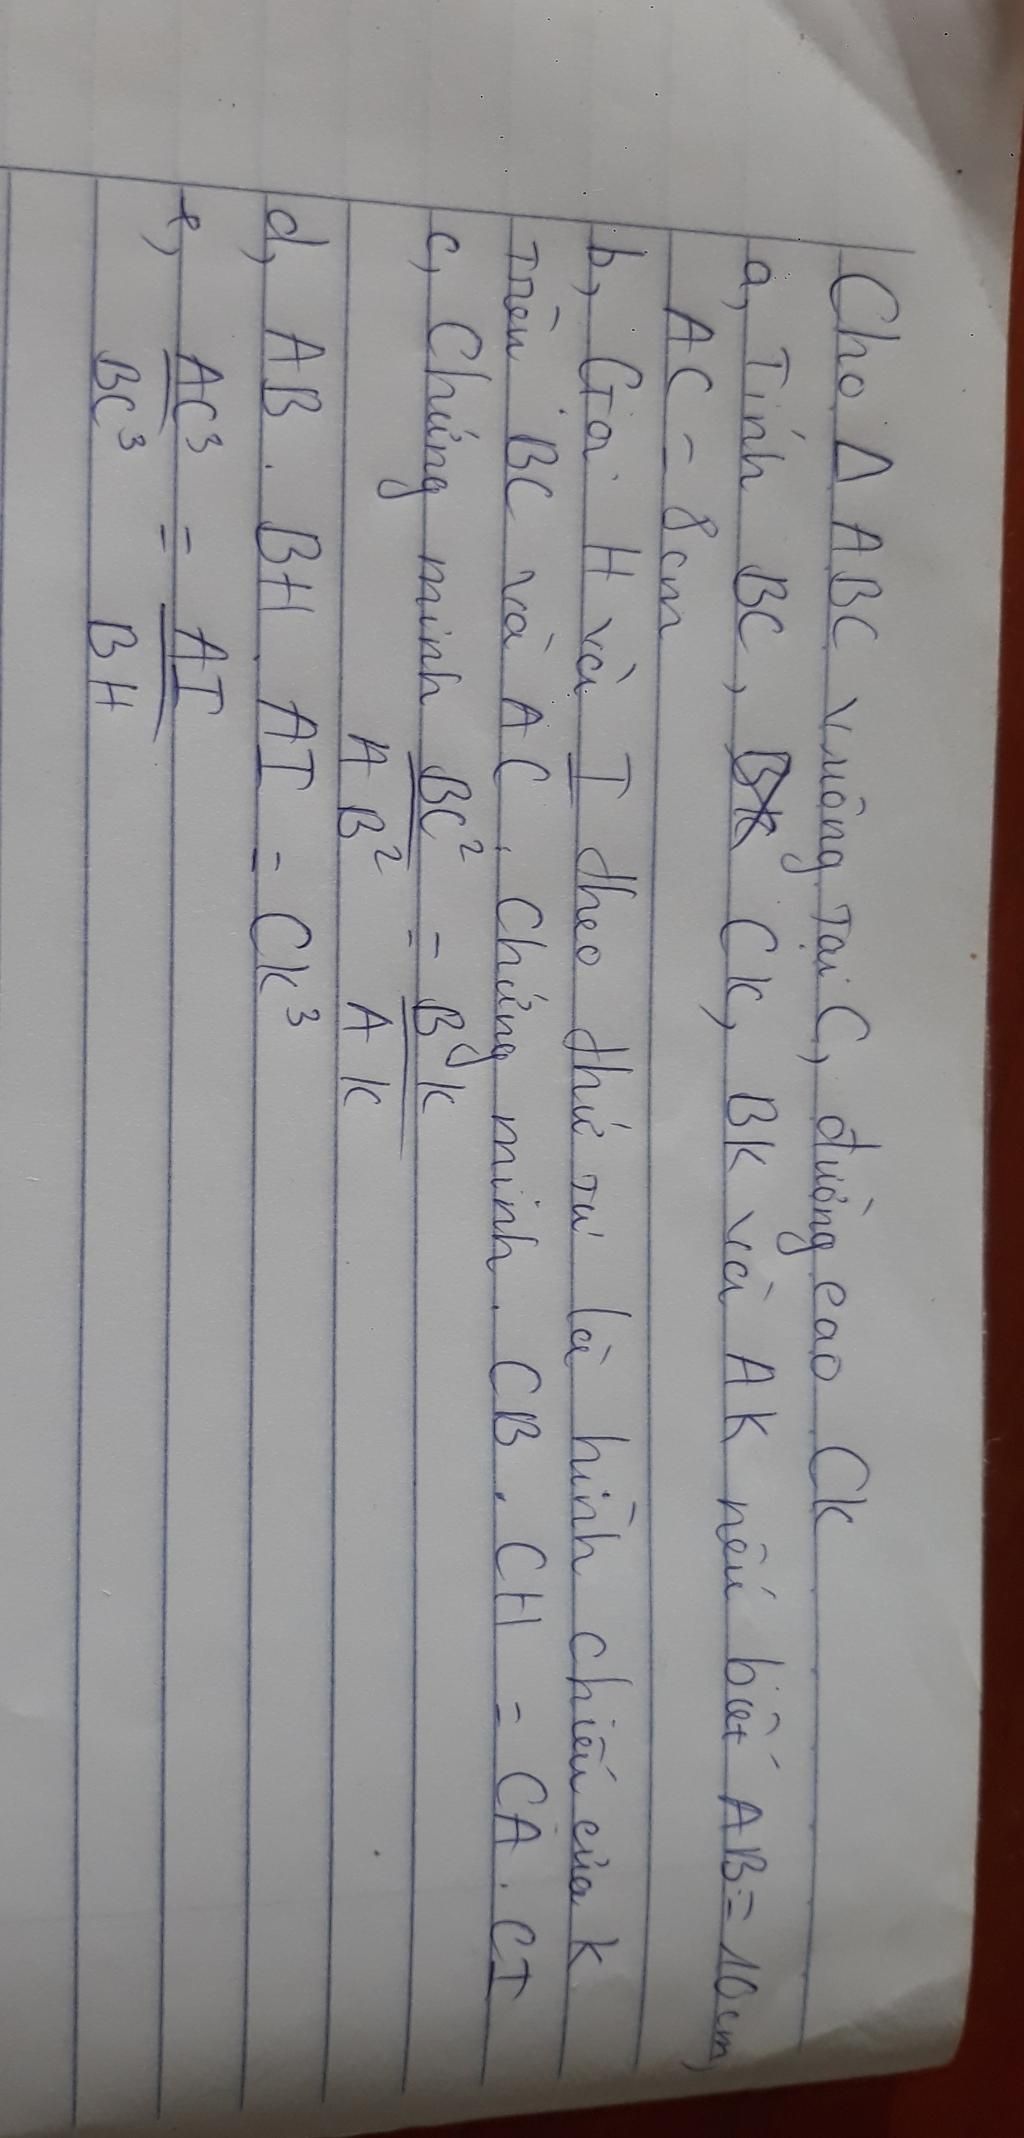 Cho Δ ABC vuông tại C, đường cao CK
a, Tính BC, CK, BK và AK nếu biết AB = 10cm,
AC = 8cm
b, Gọi H và I theo thứ tự là hình chiếu của K
trên BC và AC. Chứng minh. CB. CH = CA. CI
c, Chứng minh BC² / AB² = BK / AK
d, AB. BH. AI = CK³
e, AC³ / BC³ = AI / BH